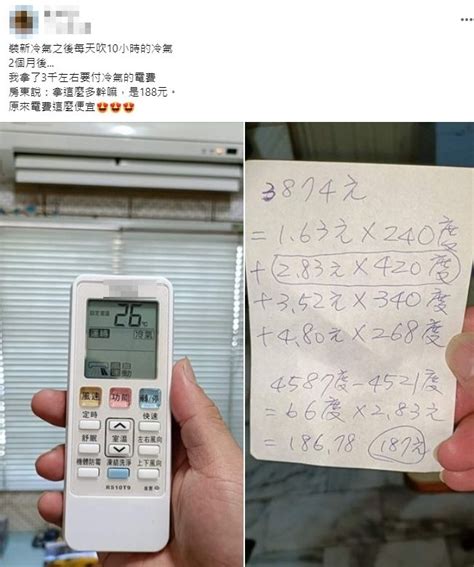 裝新冷氣之後每天吹10小時的冷氣
2個月後...
我拿了3千左右要付冷氣的電費
房東說：拿這麼多幹嘛，是188元。
原來電費這麼便宜🤩🤩🤩
26℃
運轉
冷氣
自動
風速 功能 開/停
定時
快速
舒眠
室溫
左右風向
機體防霉
凍結洗淨
上下風向
RS10T9
3874元
=1.63元×240度
+2.83元×420度
+3.52元×340度
+4.80元×268度
4587度-4521度
=66度×2.83元
=186.78 187元